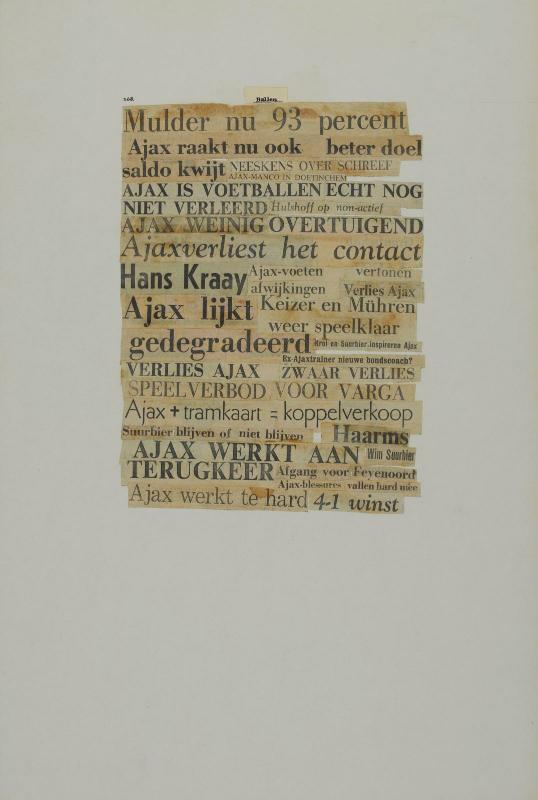 168. Ballen
Mulder nu 93 percent
Ajax raakt nu ook beter doel
saldo kwijt NEESKENS OVER SCHREEF
AJAX-MANCO IN DOETINCHEM
AJAX IS VOETBALLEN ECHT NOG
NIET VERLEERD Hulshoff op non-actief
AJAX WEINIG OVERTUIGEND
Ajax verliest het contact
Hans Kraay Ajax-voeten vertonen
afwijkingen Verlies Ajax
Ajax lijkt Keizer en Mühren
weer speelklaar
gedegradeerd Krol en Suurbier inspireren Ajax
Ex-Ajaxtrainer nieuwe bondscoach?
VERLIES AJAX ZWAAR VERLIES
SPEELVERBOD VOOR VARGA
Ajax + tramkaart = koppelverkoop
Suurbier blijven of niet blijven Haarms
AJAX WERKT AAN Wim Suurbier
TERUGKEER Afgang voor Feyenoord
Ajax-blessures vallen hard mee
Ajax werkt te hard 4-1 winst